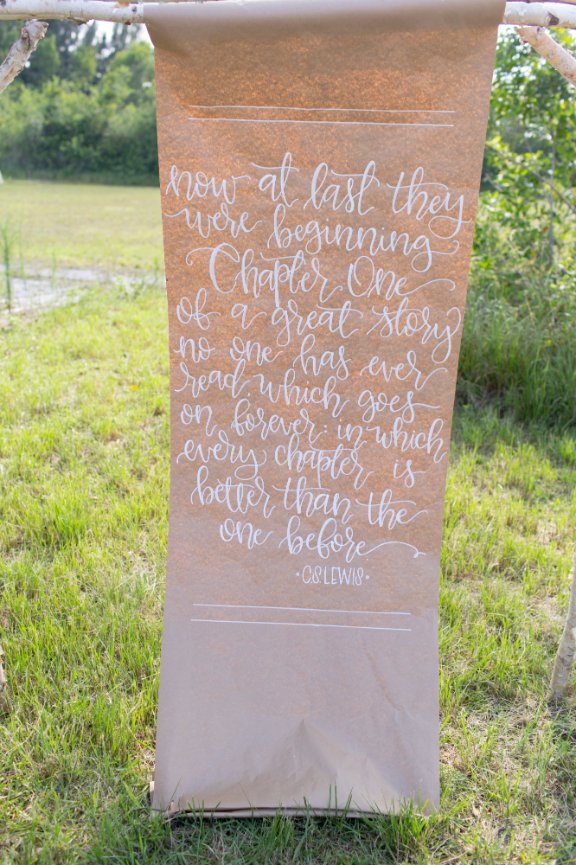 now at last they
were beginning
Chapter One
of a great story
no one has ever
read which goes
on forever: in which
every chapter is
better than the
one before
•CSLEWIS•